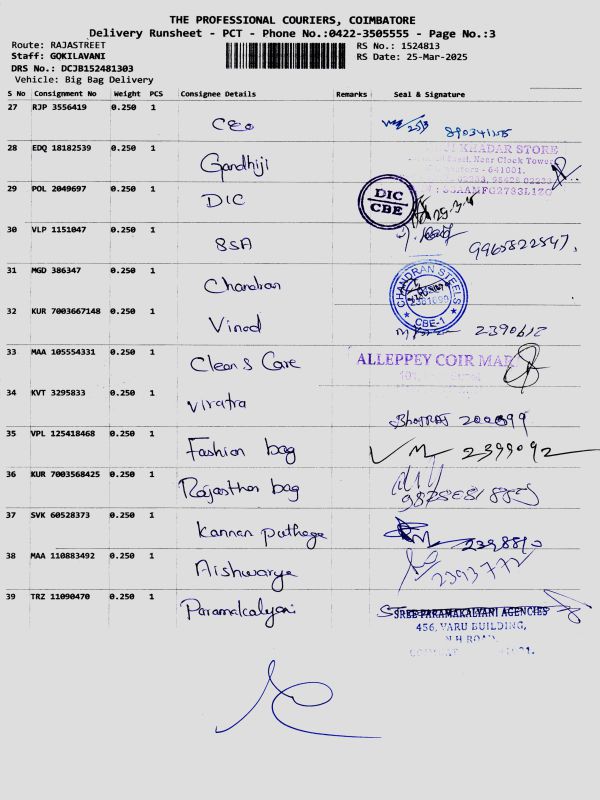 THE PROFESSIONAL COURIERS, COIMBATORE
Delivery Runsheet - PCT - Phone No.:0422-3505555 - Page No.:3
Route: RAJASTREET
RS No.: 1524813
Staff: GOKILAVANI
RS Date: 25-Mar-2025
DRS No.: DCJB152481303
Vehicle: Big Bag Delivery
S No Consignment No Weight PCS Consignee Details Remarks Seal & Signature
27 RJP 3556419 0.250 1 CEO
28 EDQ 18182539 0.250 1 Gandhiji
KHADAR STORE
Near Clock Tower
641001.
29 POL 2049697 0.250 1 DIC DIC CBE
30 VLP 1151047 0.250 1 BSA 9965822547.
31 MGD 386347 0.250 1 Chandran CHANDRAN STEELS CBE-1
32 KUR 7003667148 0.250 1 Vinod 2390612
33 MAA 105554331 0.250 1 Clean & Care ALLEPPEY COIR MAR
34 KVT 3295833 0.250 1 Viratra
35 VPL 125418468 0.250 1 Fashion bag 2399092
36 KUR 7003568425 0.250 1 Rajasthan bag
37 SVK 60528373 0.250 1 Kannan puthaga
38 MAA 110883492 0.250 1 Aishwarya 2393772
39 TRZ 11090470 0.250 1 Paramakalyani SREE PARAMAKALYANI AGENCIES
456, VARU BUILDING,
N.H ROAD,